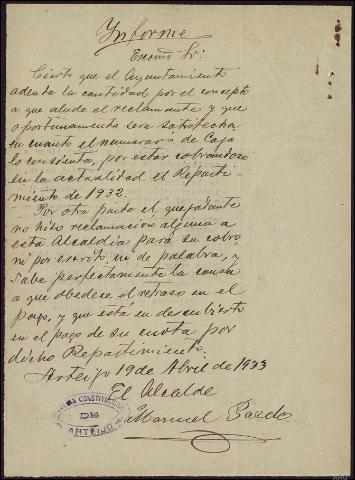 Informe
Excmo Sr:
Cierto que el Ayuntamiento
adeuda la cantidad por el concepto
a que alude el reclamante y que
oportunamente será satisfecha
en cuanto el numerario de Caja
lo consienta, por estar cobrandose
en la actualidad el Reparti-
miento de 1932.
Por otra parte el quejadante
no hizo reclamación alguna a
esta Alcaldia para su cobro
ni por escrito ni de palabra, y
sabe perfectamente la causa
a que obedece el retraso en el
pago, y que está en descubierto
en el pago de su cuota por
dicho Repartimiento.
Arteijo 19 de Abril de 1933
El Alcalde
Manuel Pardo
CONSTITUCIONAL
DE
ARTEIJO